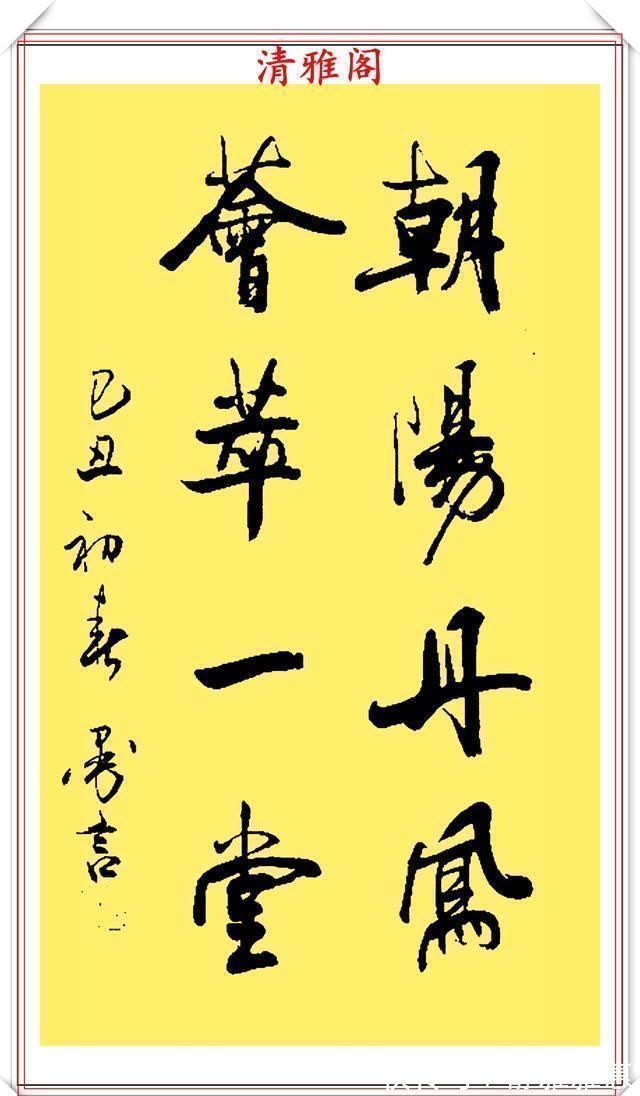 清雅阁
朝陽丹鳳
薈萃一堂
己丑初春